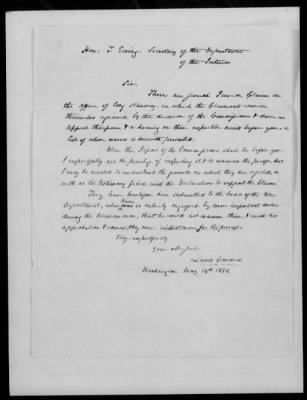 Hon. T. Ewing, Secretary of the Department
of the Interior
Sir,
There are several Pension Claims in
the office of long standing, in which the Claimants consider
themselves aggrieved by the decision of the Commissioner & desire an
Appeal therefrom, & a hearing on their respective merits before you, a
list of whose names is herewith presented.
When the Papers of the Commissioner shall be before you
I respectfully ask the privilege of inspecting it & to examine the same, that
I may be enabled to understand the grounds on which they are rejected, as
well as the testimony filed with the Declarations to support the Claim.
They have heretofore been submitted to the head of the War
Department, whose time was so entirely engaged by more important duties
during the Mexican war, that he could not examine them, & with his
approbation & consent, they were withdrawn for the present.
Very respectfully
Your
Washington May 14th 1850.